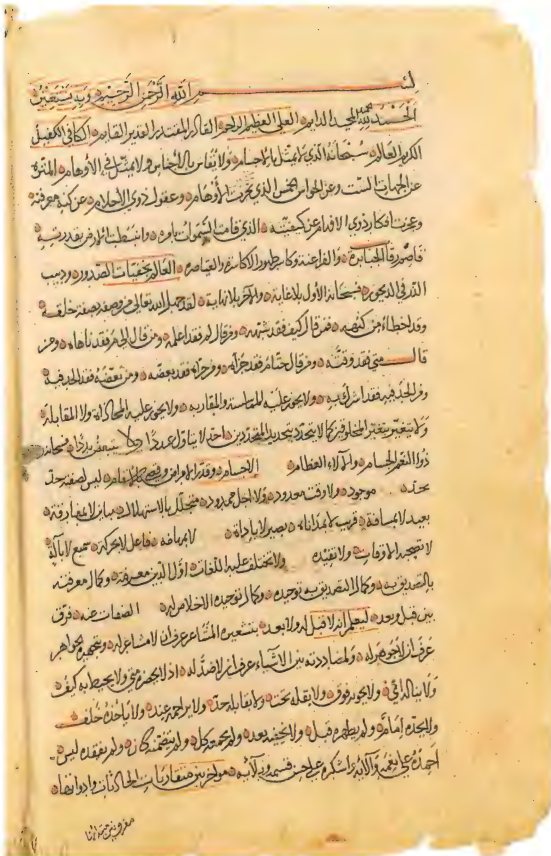 بسم الله الرحمن الرحيم وبه نستعين
الحمد لله المجيد الدائم العلي العظيم الراحم القاهر المقتدر القدير القائم الكافي الكفيل
الكريم العالم سبحانه الذي لا يمثل بالاجسام ولا يقاس بالاجناس ولا يمثل في الاوهام المنزه
عن الجهات الست وعن الحواس الخمس الذي تحيرت الاوهام وعقول ذوي الاحلام عن كنه معرفته
وعجزت افكار ذوي الافهام عن كيفيته الذي قامت السموات بامره وانبسطت الارض بقدرته
قاصم رقاب الجبابرة والفراعنة وكاسر ظهور الاكاسرة والقياصرة العالم بخفيات الصدور ودبيب
الذر في الديجور فسبحانه الاول بلا غاية والآخر بلا نهاية لقد جهل الله تعالى من وصفه بصفة خلقه
وقد اخطاه من كنهه فمن قال كيف فقد شبهه ومن قال لم فقد اعله ومن قال الى م فقد ناهاه ومن
قال متى فقد وقته ومن قال حتام فقد جزأه ومن جزأه فقد بعضه ومن بعضه فقد الحد فيه
ومن الحد فيه فقد اشرك به ولا يجوز عليه المقايسة والمقاربة ولا يجوز عليه المحاكاة ولا المقابلة
ولا يتغير بتغير المخلوقين كما لا يتحدد بتحديد المتحددين احد لا بتاويل عدد
ذو النعم الجسام والآلاء العظام الاجسام وقدر الامور
بحد موجود ولا وقت معدود ولا اجل محدود متجلل لا باستهلال مباين لا بمفارقة
بعيد لا بمسافة قريب لا بمداناة بصير لا باداة لا بمسافة فاعل لا بحركة سميع لا بآلة
لا تصحبه الاوقات ولا تقيده ولا تختلف عليه اللغات اول الدين معرفته وكمال معرفته
التصديق به وكمال التصديق به توحيده وكمال توحيده الاخلاص له الصفات عنه فرق
بين قبل وبعد ليعلم ان لا قبل له ولا بعد بتشعيره المشاعر عرف ان لا مشاعر له وبتجهيره الجواهر
عرف ان لا جوهر له وبمضاددته بين الاشياء عرف ان لا ضد له اذ لا يحجزه متى ولا يحيط به كيف
ولا يناله اي ولا يحويه فوق ولا يقله تحت ولا يقابله حد ولا يزاحمه عند ولا ياخذه خلف
ولا يحده امام ولم يظهره قبل ولا يخفيه بعد ولم يجمعه كل ولم يفقده ليس
احمده على نعمه وآلائه واشكره على